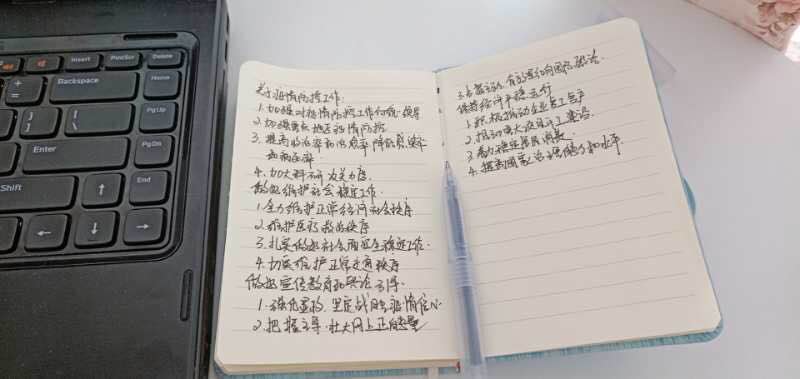 Insert
PrntScr
Delete
Backspace
Home
PgUp
Enter
PgDn
Shift
End
关于疫情防控工作.
1.加强对疫情防控工作的统一领导
2.加强重点地区疫情防控
3.提高收治率和治愈率 降低感染率
和病死率
4.加大科研攻关力度.
做好维护社会稳定工作.
1.全力维护正常经济社会秩序
2.维护医疗救治秩序
3.扎实做好社会面安全稳定工作.
4.切实维护正常交通秩序
做好宣传教育和舆论引导.
1.强化宣教,坚定战胜疫情信心
2.把握主导.壮大网上正能量
3.占据主动.有效影响国际舆论.
保持经济平稳运行
1.积极推动企业复工复产
2.推动重大项目开工建设.
3.着力稳定居民消费
4.提高国家治理能力和水平